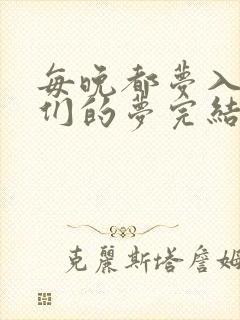 每晚都夢入
们的夢完結
克麗斯塔詹姆